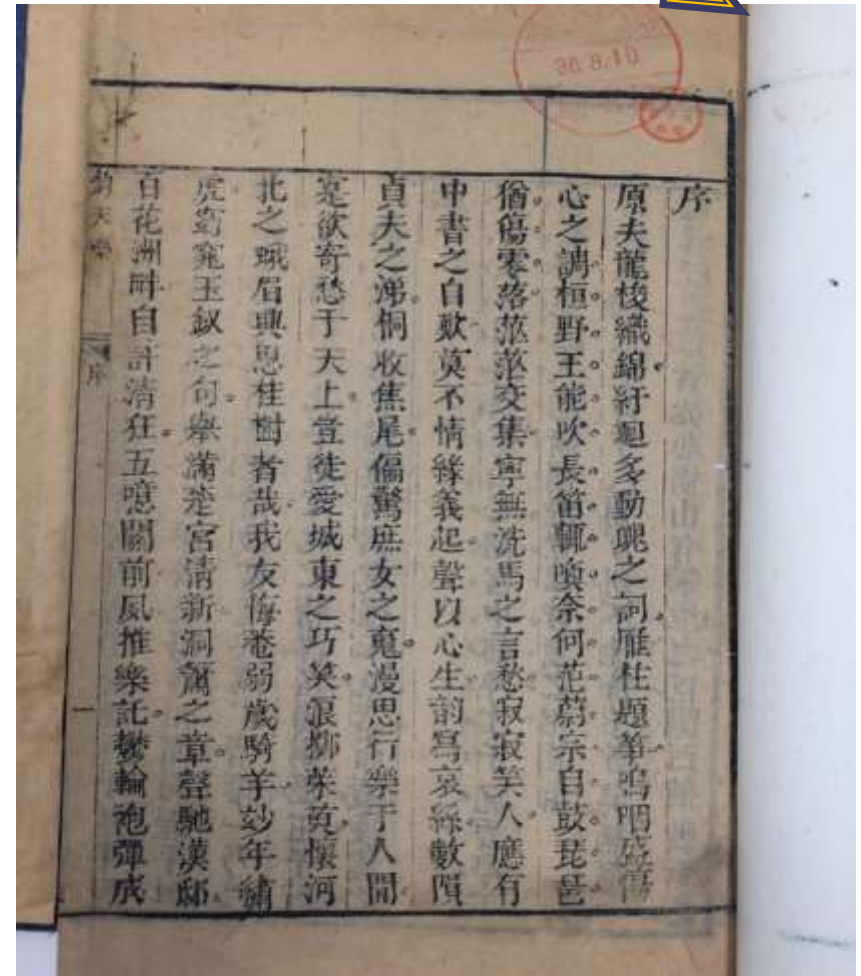 36.8.10
序
原夫龍梭織錦紆廻多動魄之詞雁柱題箏嗚咽盛傷
心之調桓野王能吹長笛輒喚奈何范蔚宗自鼓琵琶
猶傷零落茫茫交集寧無洗馬之言愁寂寂笑人應有
中書之自歎莫不情緣義起聲以心生韵寫哀絲數隕
貞夫之涕桐收焦尾偏驚庶女之魂漫思行樂于人間
寔欲寄愁于天上豈徒愛城東之巧笑浪擲茱萸懷河
北之蛾眉興思桂樹者哉我友悔菴弱歲騎羊玅年繡
虎窈窕玉釵之句譽滿楚宮清新洞簫之章聲馳漢邸
百花洲畔自許清狂五噫關前風推樂託鬱輪袍彈成
鈞天樂 序 一